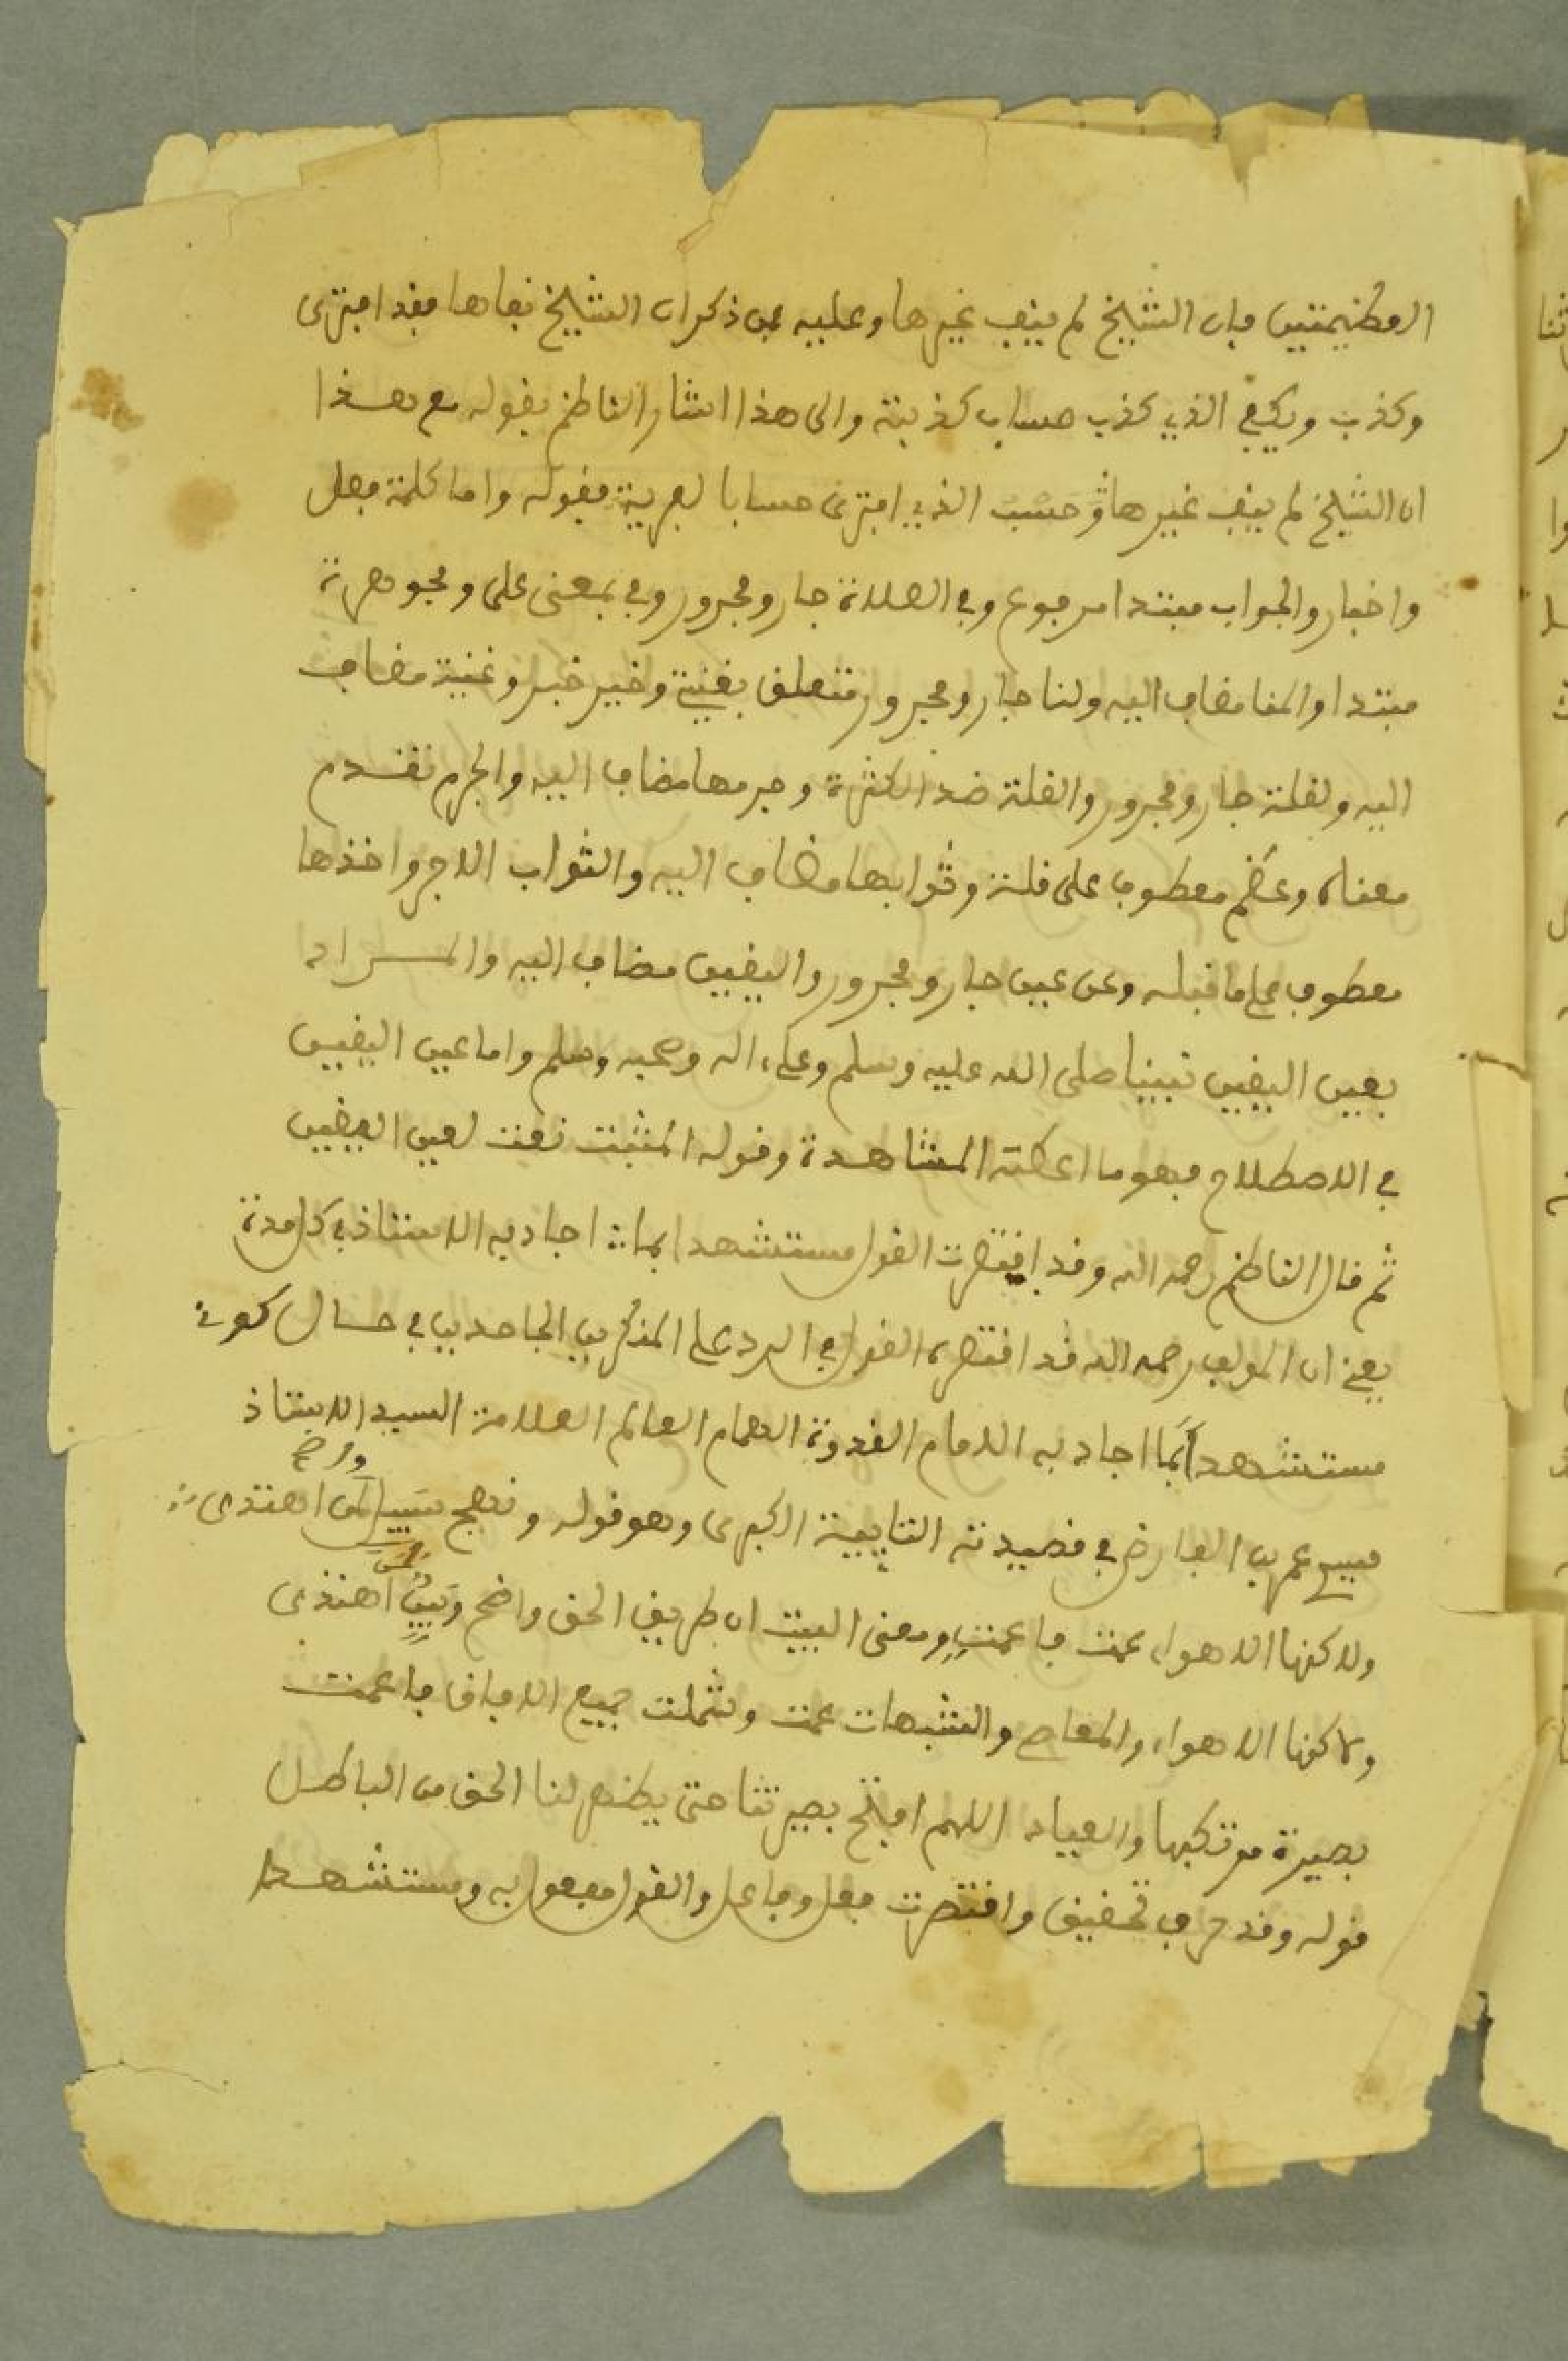 العظيمتين فإن الشيخ لم ينف غيرها وعليه فمن ذكر ان الشيخ نفاها فقد افترى
وكذب ويكفي الذي كذب حساب كذبته والى هذا اشار الناظم بقوله مع هذا
ان الشيخ لم ينف غيرها وَحَسْبُ الذي افترى حسابا لفرية فقوله واما كلمة فعل
واخبار والجواب مبتدا مرفوع وفي الصلاة جار ومجرور وفي بمعنى على ومجوهرة
مبتدا والمنا مضاف اليه ولنا جار ومجرور متعلق بغنية وخير خبر وغنية مضاف
اليه ولقلة جار ومجرور والقلة ضد الكثرة وجرمها مضاف اليه والجرم تقدم
معناه وعظم معطوف على قلة وثوابها مضاف اليه والثواب الاجر واخذها
معطوف على ما قبله وعن عين جار ومجرور واليقين مضاف اليه والمراد
بعين اليقين نبينا صلى الله عليه وسلم وعلى ءاله وصحبه وسلم واما عين اليقين
في الاصطلاح فهو ما اعطته المشاهدة وقوله المثبت نعت لعين اليقين
ثم قال الناظم رحمه الله وقد اقتصرت القول مستشهدا بما اجاد به الاستاذ في كل مدة
يعني ان المولف رحمه الله قد اقتصر القول في الرد على المنكرين الجاحدين في حال كونه
مستشهدا بما اجاد به الامام القدوة الهمام العالم العلامة السيد الاستاذ
عمر بن الفارض في قصيدته التاييية الكبرى وهو قوله ونهج سبيل واضح لمن اهتدى
ولاكنها الاهواء عمت فاعمت ومعنى البيت ان طريق الحق واضح وبين لمن اهتدى
ولاكنها الاهواء والمعاصي والشبهات عمت وشملت جميع الافاق فاعمت
بصيرة مرتكبها والعياد اللهم افتح بصيرتنا حتى يظهر لنا الحق من الباطل
قوله وقد حرف تحقيق واقتصرت فعل وفاعل والقول مفعول به ومستشهدا